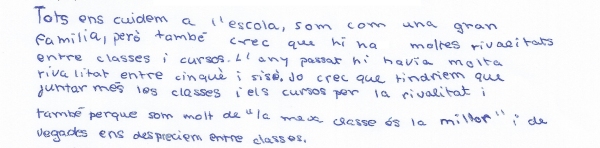 Tots ens cuidem a l'escola, som com una gran
família, però també crec que hi ha moltes rivalitats
entre classes i cursos. L'any passat hi havia molta
rivalitat entre cinquè i sisè. Jo crec que tindriem que
juntar més les classes i els cursos per la rivalitat i
també perque som molt de "la meva classe és la millor" i de
vegades ens despreciem entre classes.